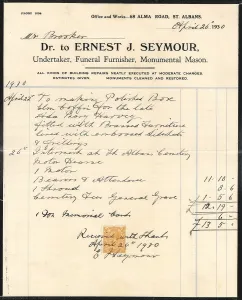 Office and Works—68 ALMA ROAD, ST. ALBANS.
April 26th 1930
Mr Brooker
Dr. to ERNEST J. SEYMOUR,
Undertaker, Funeral Furnisher, Monumental Mason.
ALL KINDS OF BUILDING REPAIRS NEATLY EXECUTED AT MODERATE CHARGES
ESTIMATES GIVEN. MONUMENTS CLEANED AND RESTORED.
1930
To making Polished
Elm Coffin for the late
fitted with Brass Furniture
lined with embossed
& Frillings
26 Interment at St Albans Cemetery
Motor Hearse
1 Motor
Bearers & Attendance 11 - 10 -
1 Shroud 3 - 6
Cemetery Fees General Grave 1 - 5 - 6
12 - 19 -
1 Memorial Card 6 -
£13 - 5 -
Received with Thanks
April 26th 1930
E J Seymour